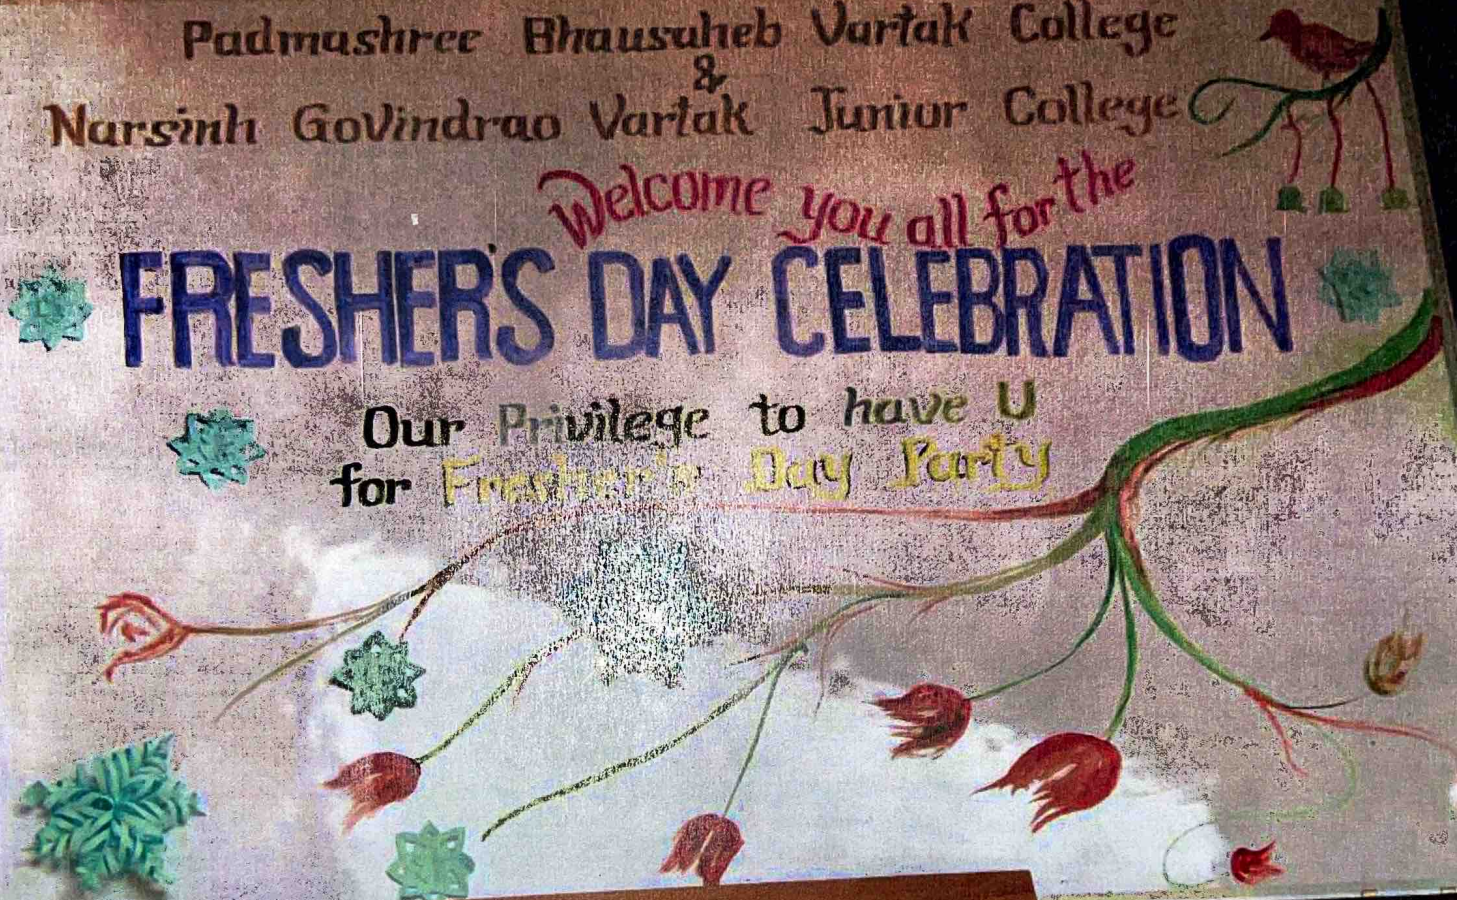 Padmashree Bhausaheb Vartak College
&
Narsinh Govindrao Vartak Junior College
Welcome you all for the
FRESHER'S DAY CELEBRATION
Our Privilege to have U
for Fresher's Day Party